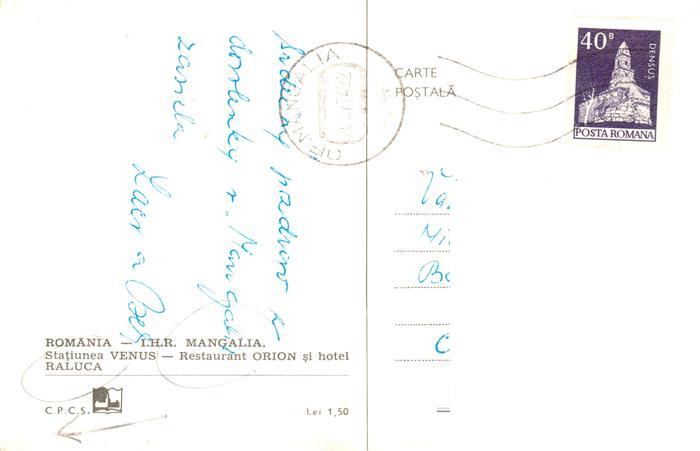 Srdečný pozdrav z
dovolenky v "Mangalii"
zasiela
Laco a
CARTE
POȘTALĂ
40 B
DENSUȘ
POSTA ROMANA
OF. MANGALIA
ROMÂNIA — I.H.R. MANGALIA.
Stațiunea VENUS — Restaurant ORION și hotel
RALUCA
C.P.C.S.
Lei 1,50